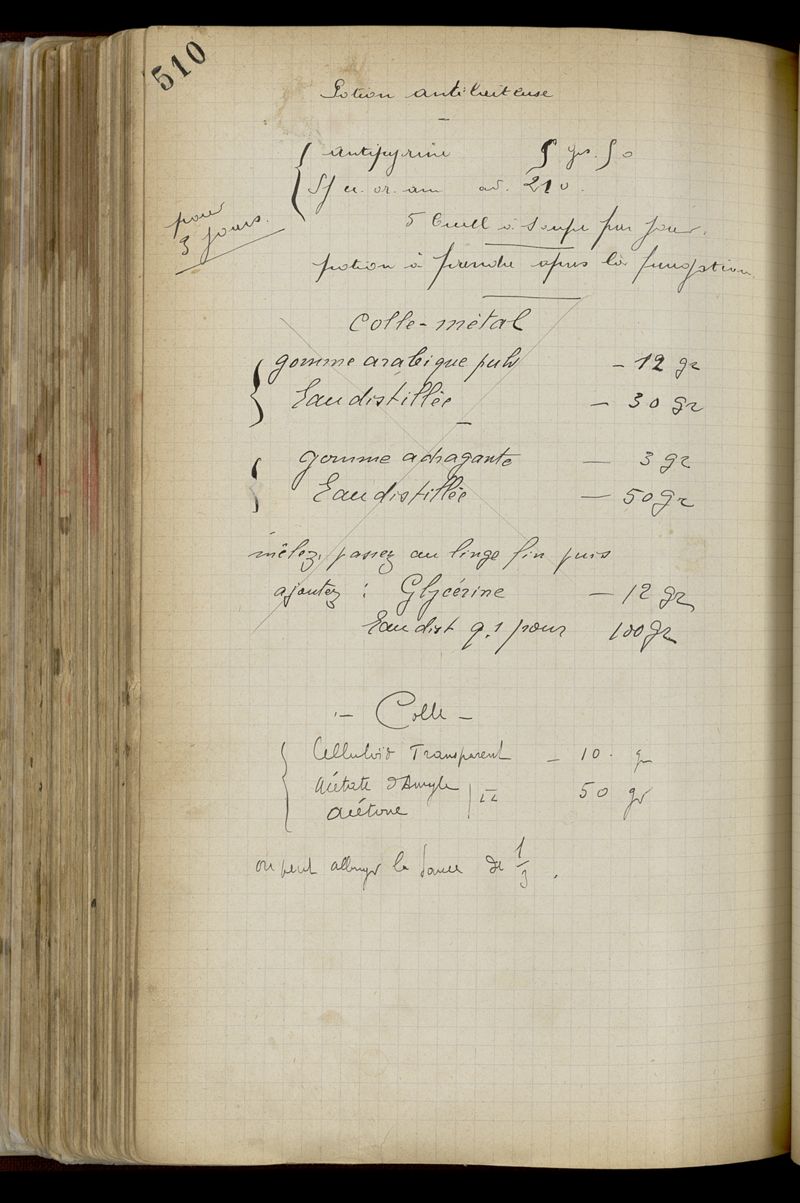 510
Potion antilaiteuse
antipyrine 5 grs. 50
Sp ec. or. am ad. 210.
pour
3 jours.
5 Cuell à soupe par jour.
potion à prendre apres la
Colle-métal
gomme arabique pulv - 12 gr
Eau distillée - 30 gr
gomme adragante - 3 gr
Eau distillée - 50 gr
mêlez, passez au linge fin puis
ajoutez : Glycérine - 12 gr
Eau dist q.s pour 100 gr
- Colle -
Celluloïd Transparent - 10. gr
Acétate d'Amyle
acétone āā 50 gr
on peut allonger la sauce de 1/3.